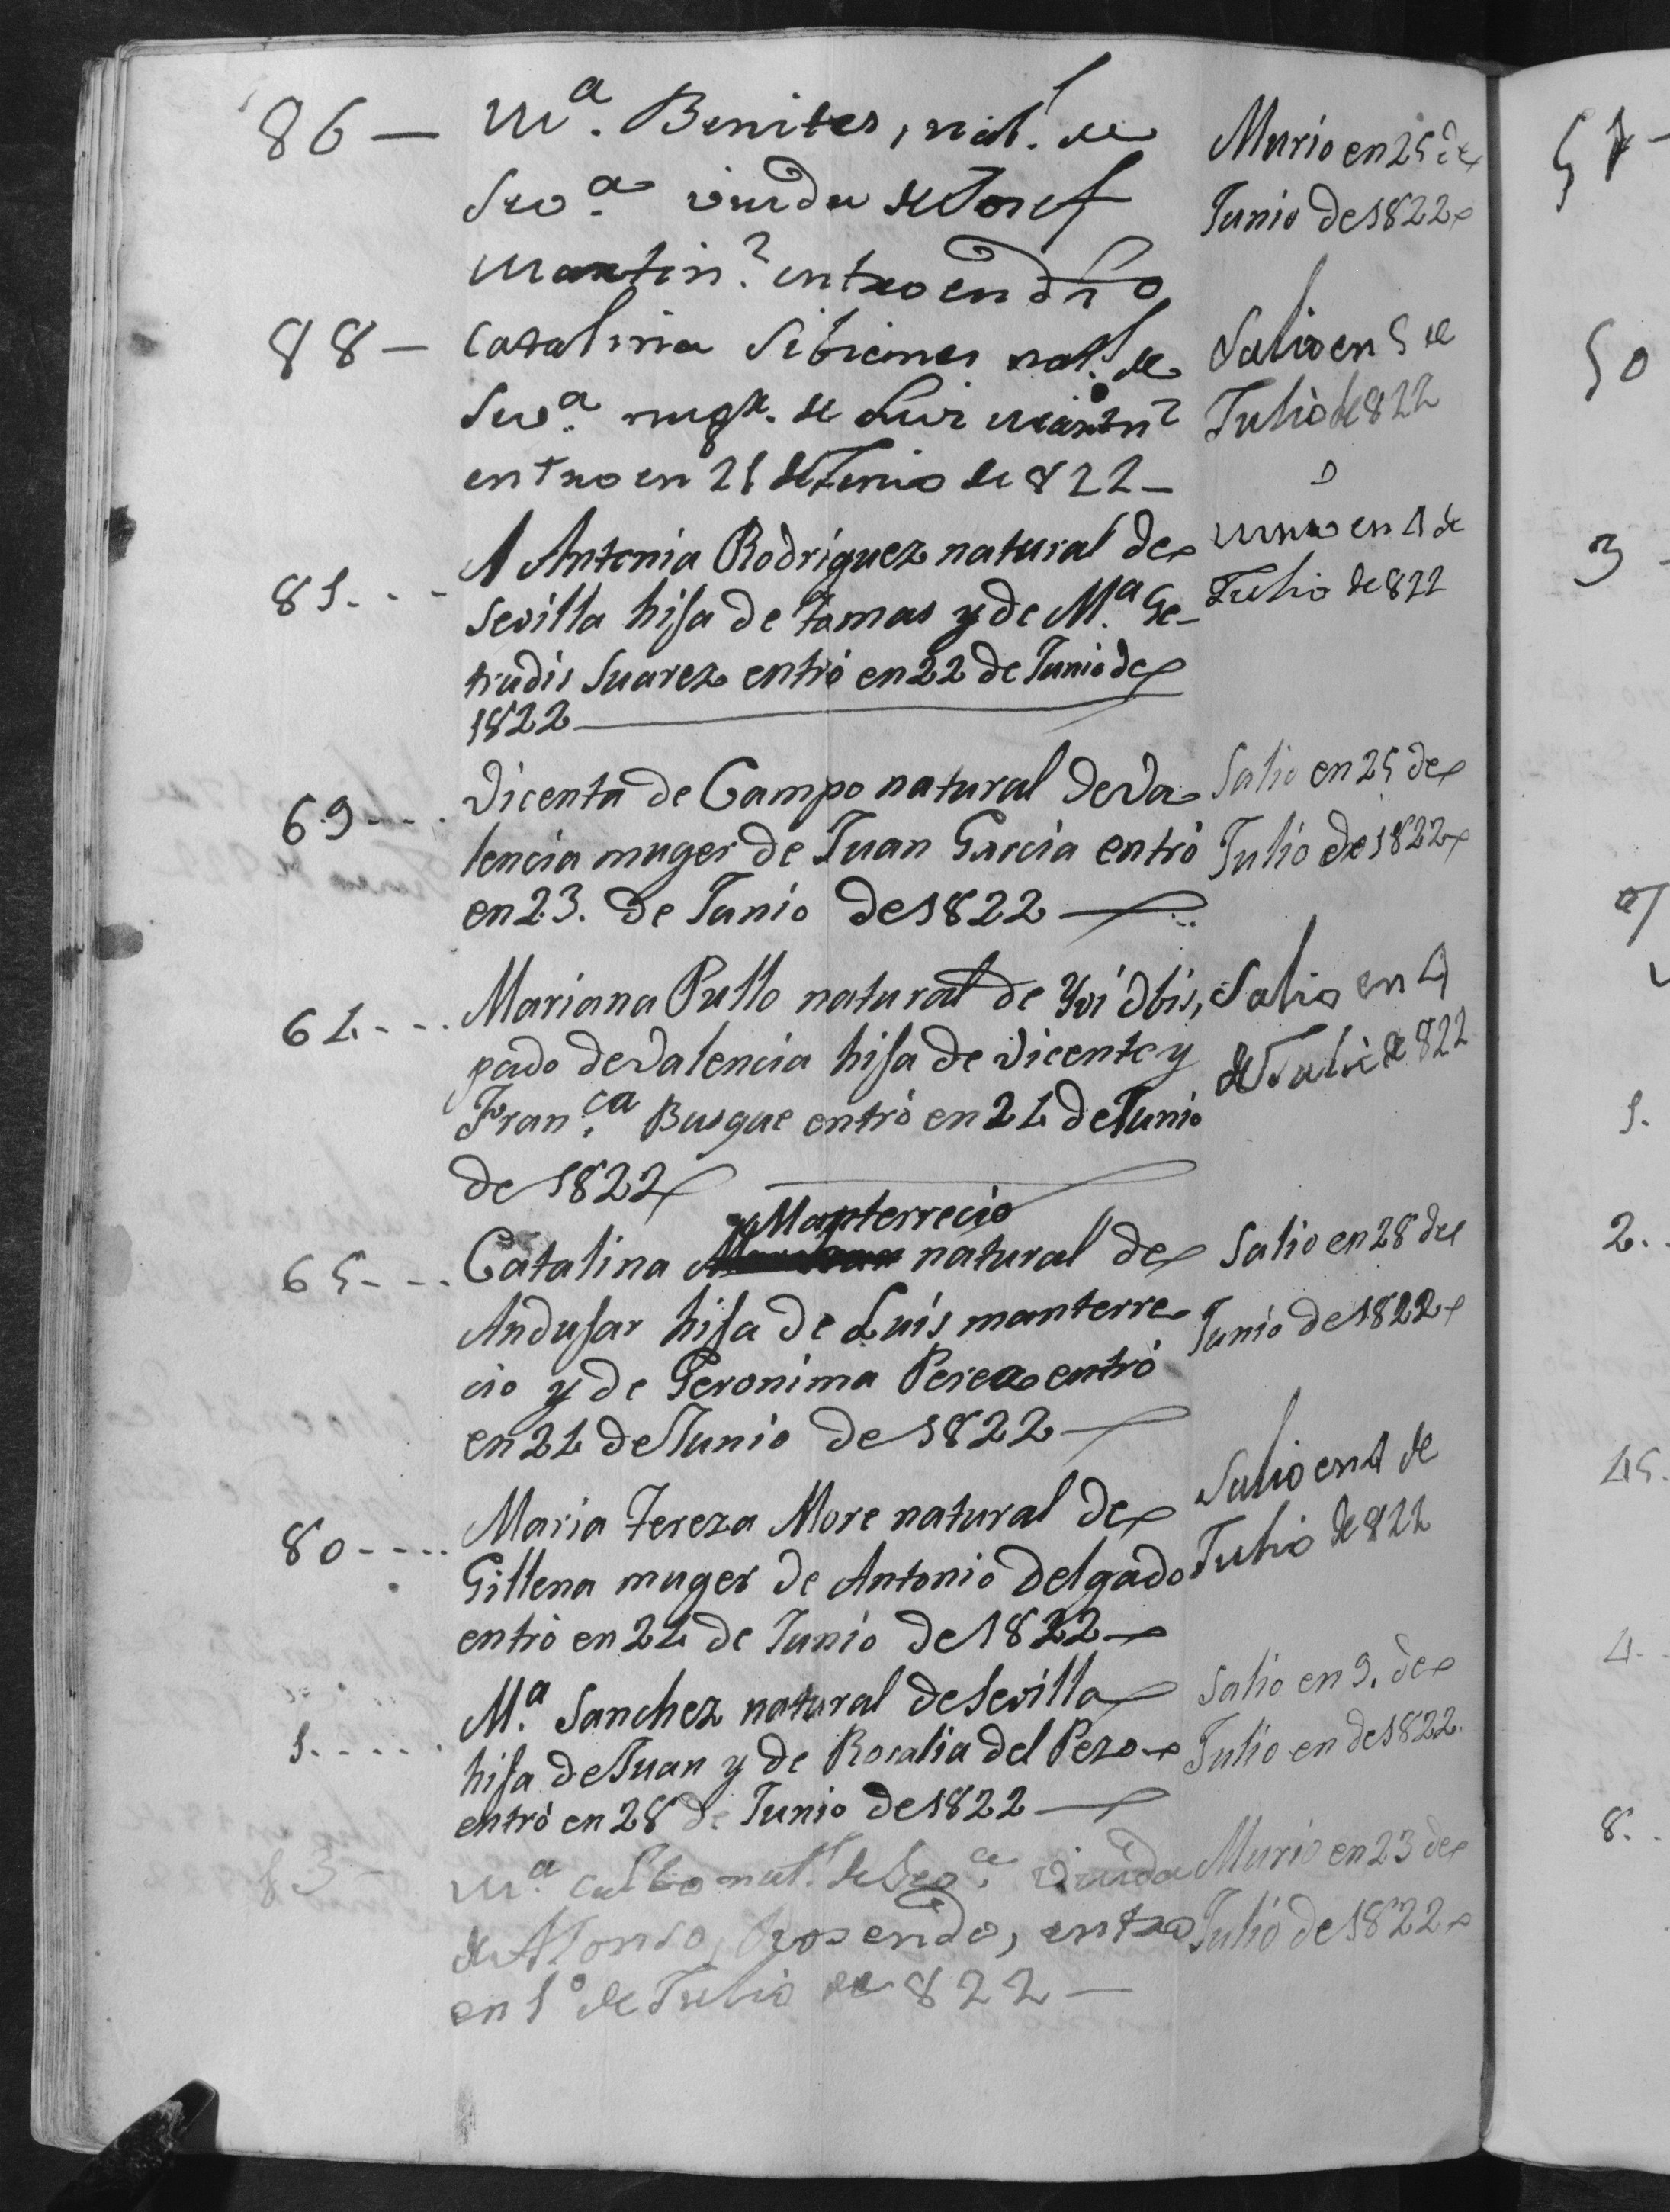 86 — M.ª Benites, nat.l de
Sev.ª viuda de Josef
Martin.z entro en dho
Murio en 25 de
Junio de 1822
88 — Catalina nat.l de
Sev.ª mug.r de Luis Martin.z
entro en 21 de Junio de 822 —
Salio en 5 de
Julio de 822
81 - - - Antonia Rodriguez natural de
Sevilla hija de Tomas y de M.ª Ge-
trudis Suarez entró en 22 de Junio de
1822
Murio en 4 de
Julio de 822
69 - - - Vicenta de Campo natural de Va
lencia muger de Juan Garcia entró
en 23. de Junio de 1822
Salio en 25 de
Julio de 1822
61 - - - Mariana Pullo natural de Yvi Obis,
pado de Valencia hija de Vicente y
Fran.ca Busque entró en 24 de Junio
de 1822
Salio en 4
de Julio de 822
Manterrecio
65 - - - Catalina natural de
Andujar hija de Luis manterre
cio y de Geronima Perea entró
en 24 de Junio de 1822
Salio en 28 de
Junio de 1822
80 - - - - Maria Tereza More natural de
Gillena muger de Antonio Delgado
entró en 24 de Junio de 1822
Salio en 4 de
Julio de 822
1. - - - - M.ª Sanchez natural de Sevilla
hija de Juan y de Rosalia del Pezo
entró en 28 de Junio de 1822
Salio en 9. de
Julio en de 1822.
83 — M.ª Calbo nat.l de Sev.ª viuda
de Alonso, Rosendo, entro
en 1º de Julio de 822 —
Murio en 23 de
Julio de 1822
50
3
1.
2. .
45.
4. .
8. .